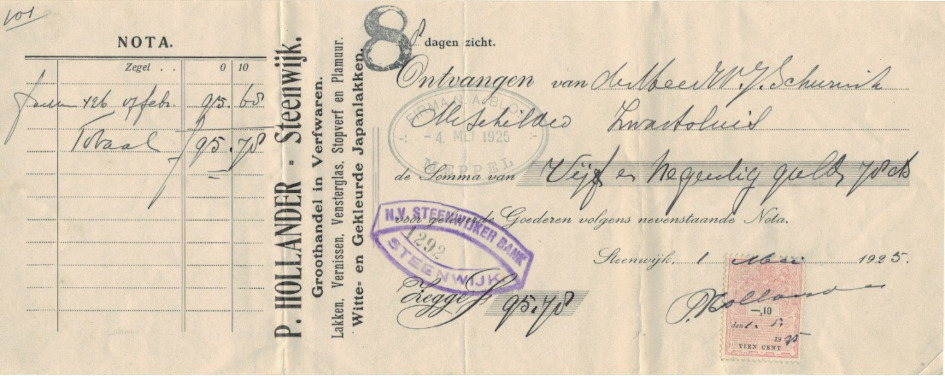 101
NOTA.
Zegel . . 0 10
factuur 126 17 febr. 95.68
Totaal f 95.78
P. HOLLANDER - Steenwijk.
Groothandel in Verfwaren.
Lakken, Vernissen, Vensterglas, Stopverf en Plamuur.
Witte- en Gekleurde Japanlakken.
8
8 dagen zicht.
Ontvangen van den Heer W. J. Schuurink
Mr Schilder Zwartsluis
FIRMA
- 4. MEI 1925
MEPPEL
de Somma van Vijf en Negentig gulden 78 cts
voor geleverde Goederen volgens nevenstaande Nota.
N.V. STEENWIJKER BANK
1292
STEENWIJK
Steenwijk, 1 Mei 1925.
Zegge f 95.78
P. Hollander
—,10
den 1. 5.
19 25
TIEN CENT